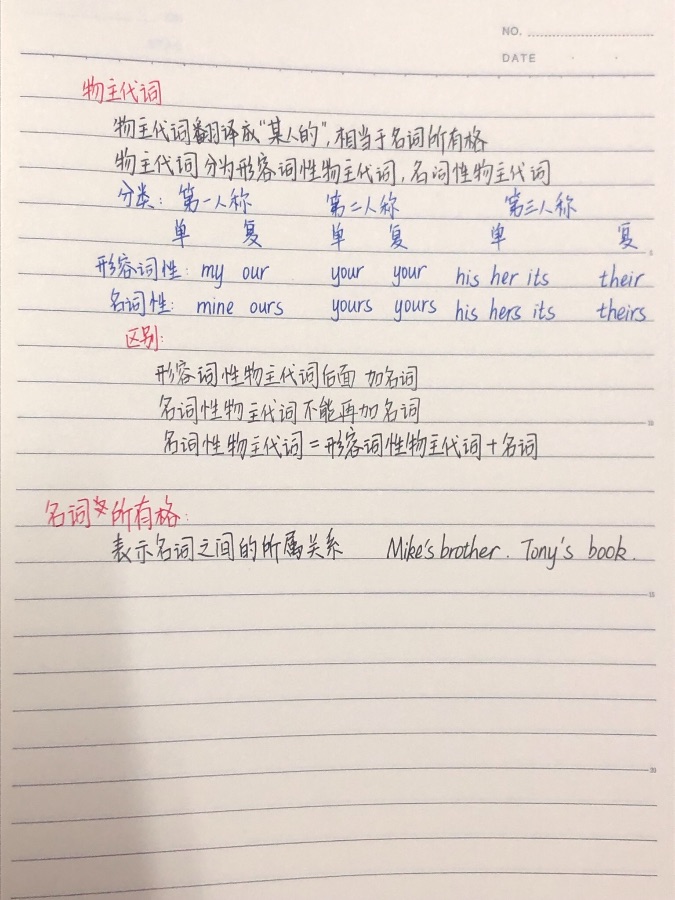 NO.
DATE
物主代词
物主代词翻译成"某人的",相当于名词所有格
物主代词分为形容词性物主代词,名词性物主代词
分类: 第一人称 第二人称 第三人称
单 复 单 复 单 复
形容词性: my our your your his her its their
名词性: mine ours yours yours his hers its theirs
区别:
形容词性物主代词后面 加名词
名词性物主代词不能再加名词
名词性物主代词=形容词性物主代词+名词
名词所有格:
表示名词之间的所属关系 Mike's brother. Tony's book.
5
10
15
20